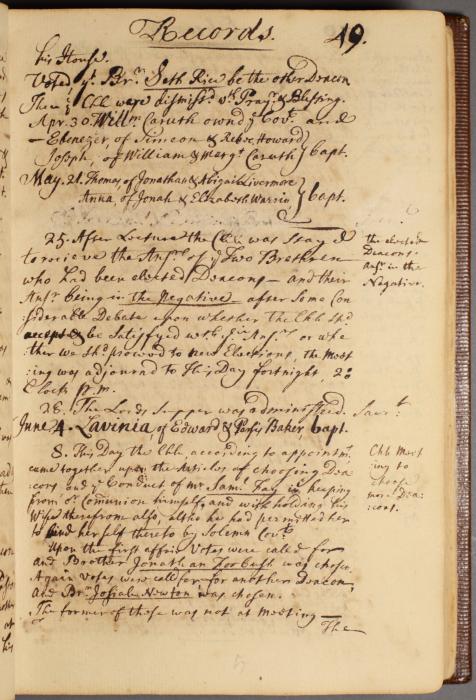 Records. 49.
his House.
Voted yt. Br. Seth Rice be the other Deacon
Then ye Chh were dismiss'd wth. Pray'r & Blessing.
Apr. 30. Willm. Caruth ownd ye Covt. and
— Ebenezer, of Simeon & Rebec. Howard } bapt.
Joseph, of William & Margt. Caruth
May. 21. Thomas, of Jonathan & Abigail Livermore } bapt.
Anna, of Jonah & Elizabeth Warrin
25. After Lecture the Chh was stay'd
to recieve the Answ. of ye Two Brethren
who had been elected Deacons — and their
Answ. being in the Negative — after Some Con
:siderable Debate upon whether the Chh shd.
accept & be Satisfyed with their Answ. or whe
:ther we shd. proceed to new Elections, the Meet
:ing was adjournd to this Day fortnight, 2 o
Clock p.m.
the elected
Deacons
Answ. in the
Negative.
26. The Lords Supper was administred. Sacrt:
June 4. Lavinia, of Edward & Persis Baker, bapt.
8. This Day the Chh according to appointmt.
came together upon the Articles of choosing Dea
:cons and ye Conduct of mr. Saml. Fay in keeping
from or. Comunion himself, and withholding his
Wife therefrom also, altho he had permitted her
to bind her self thereto by Solemn Covt.
Chh Meet
:ing to
choose
more Dea:
:cons.
Upon the first affair Votes were called for
and Brother Jonathan Forbush was chosen.
Again Votes were calld for for another Deacon,
and Br. Josiah Newton was chosen.
The former of these was not at Meeting —
The